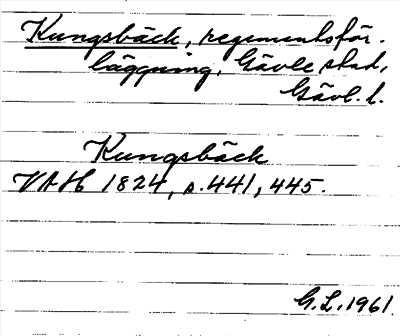 Kungsbäck, regementsför-
läggning, Gävle stad,
Gävl. l.
Kungsbäck
VAH 1824, s. 441, 445.
G.L. 1961